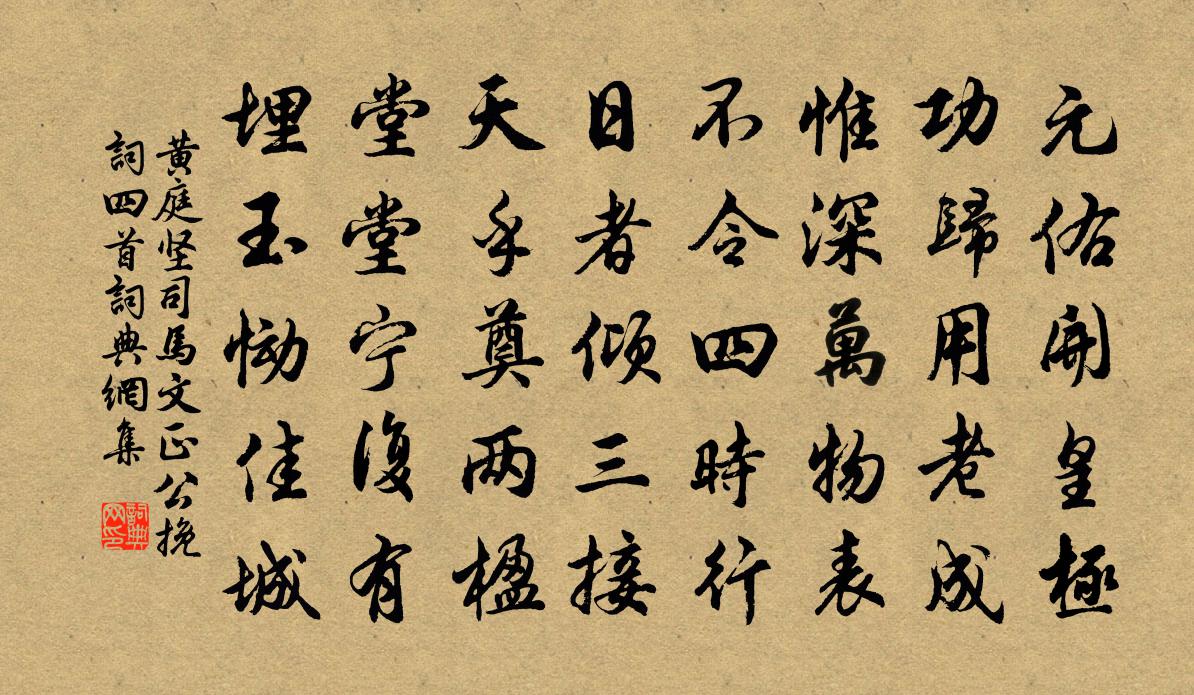 元佑開皇極
功歸用老成
惟深萬物表
不令四時行
日者傾三接
天乎奠两楹
堂堂宁復有
埋玉慟佳城
黄庭坚司馬文正公挽
詞四首詞典網集
詞典
网印